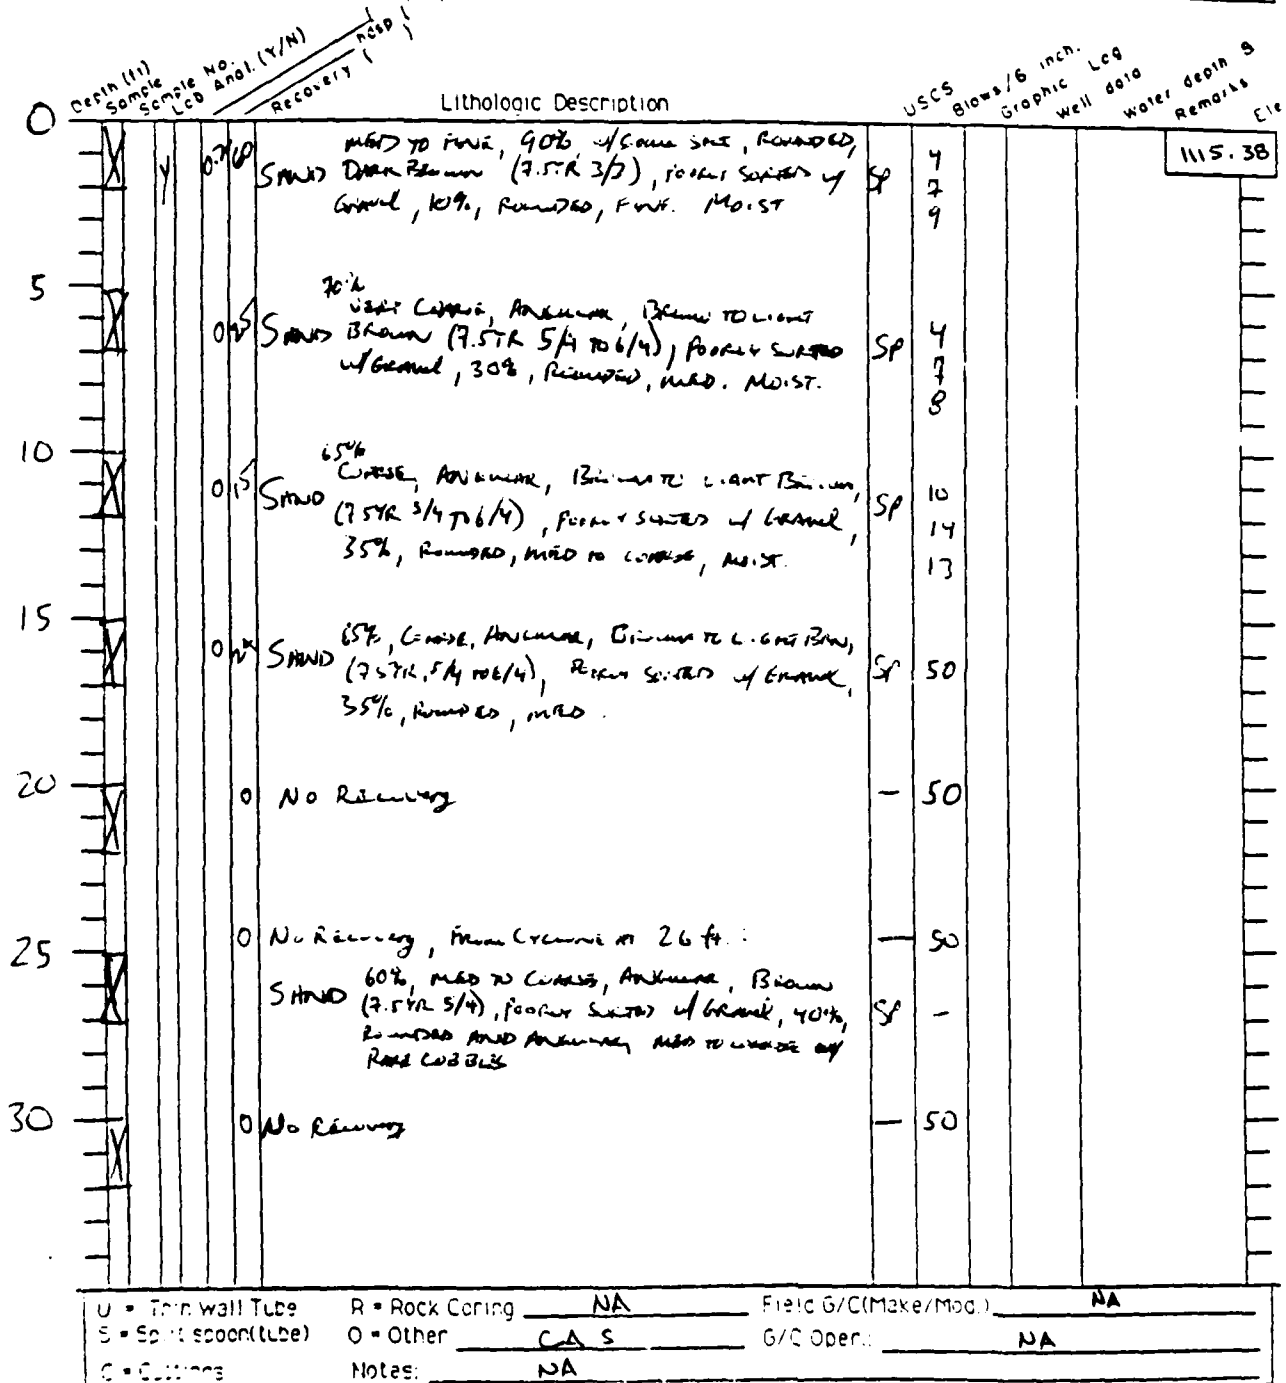 Depth (ft)
Sample
Sample No.
Lab Anal. (Y/N)
Recovery (
Lithologic Description
USCS
Blows/6 inch.
Graphic Log
Well data
Water depth
Remarks
Ele
0
1115.38
Y 0.7 60
MED TO FINE, 90%, w/ SOME SILT, ROUNDED,
SAND DARK BROWN (7.5YR 3/3), POORLY SORTED w/ SP 4
7
GRAVEL, 10%, ROUNDED, FINE. MOIST
9
5
70%
VERY COARSE, ANGULAR, BROWN TO LIGHT
0 SAND BROWN (7.5YR 5/4 TO 6/4), POORLY SORTED SP 4
w/ GRAVEL, 30%, ROUNDED, MED. MOIST.
7
8
10
65%
0 15 SAND COARSE, ANGULAR, BROWN TO LIGHT BROWN, SP 10
(7.5YR 5/4 TO 6/4), POORLY SORTED w/ GRAVEL,
14
35%, ROUNDED, MED TO COARSE, MOIST.
13
15
0 SAND 65%, COARSE, ANGULAR, BROWN TO LIGHT BRWN,
(7.5YR, 5/4 TO 6/4), POORLY SORTED w/ GRAVEL, SP 50
35%, ROUNDED, MED.
20
0 No Recovery — 50
0 No Recovery, FROM CYCLONE AT 26 ft. — 50
25
SAND 60%, MED TO COARSE, ANGULAR, BROWN
(7.5YR 5/4), POORLY SORTED w/ GRAVEL, 40%, SP -
ROUNDED AND ANGULAR, MED TO COARSE w/
RARE COBBLES
30
0 No Recovery — 50
U = Thin Wall Tube R = Rock Coring NA Field G/C(Make/Mod.) NA
S = Split spoon(tube) O = Other CAS G/C Oper.: NA
C = Cuttings Notes: NA